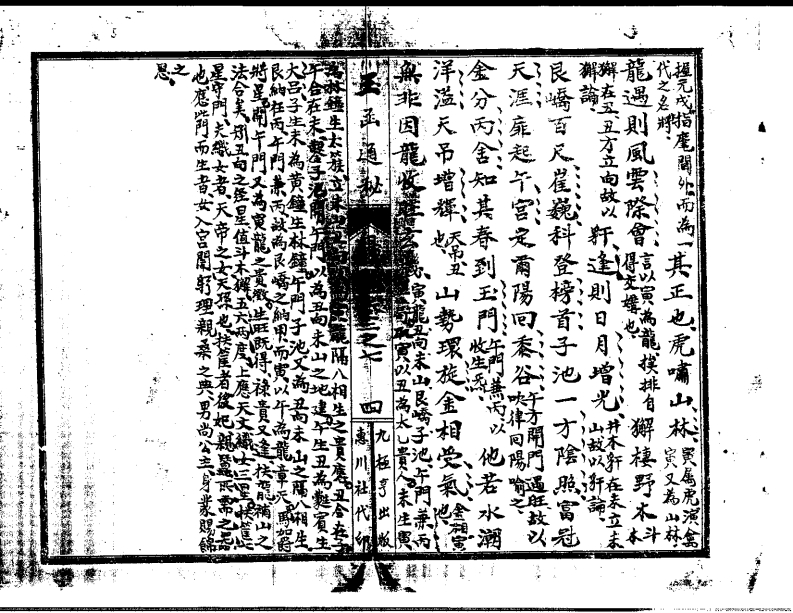 握元戎指麾閫外而為一代之名將
其正也虎嘯山林
寅屬虎演禽寅又為山林
龍遇則風雲際會
言以寅為龍挨排自得交媾也
獬棲野木
斗木獬在丑丑方立向故以獬論
犴逢則日月增光
井木犴在未立未山故以犴論
艮嶠百尺崔巍科登榜首子池一方陰照富冠
天涯扉起午宮定爾陽回黍谷
午方開門遇旺故以吹律回陽喻之
金分丙舍知其春到玉門
午門兼丙以收生炁
他若水潮
洋溢天吊增輝
天吊丑也
山勢環旋金相受氣
金相寅也
無非因龍收
寅龍丑向未山艮嶠子池午門兼丙
取寅以丑為太乙貴人未生寅
玉函通秘
之七
四
九極亨出版
惠川社代印
為林鐘生太簇立未山
龍隔八相生之貴度丑合在子
午合在未
子池開午門以為丑向未山之地建午生丑為蕤賓生
大呂子生未為黃鐘生林鐘午門子池又為丑向未山之隔八相生
艮納柱丙午門兼丙故為艮嶠之納甲而寅以午為龍章天馬加爵
將星開午門又為寅龍之貴徵生旺既得祿貴又逢扶龍補山之
法合矣别丑向之經星值斗木獬五六兩度上應天文織女三星
星守門夫織女者天帝之女天孫也扶筐者后妃親蠶所需之
也應此門而生者女入宮闈躬理親桑之典男尚公主身叢賜錦
之恩